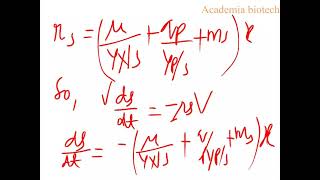 Academia biotech
r_s = (μ/Y_{X/S} + q_p/Y_{P/S} + m_s) x
So, V ds/dt = -r_s V
ds/dt = -(μ/Y_{X/S} + q/Y_{P/S} + m_s) x